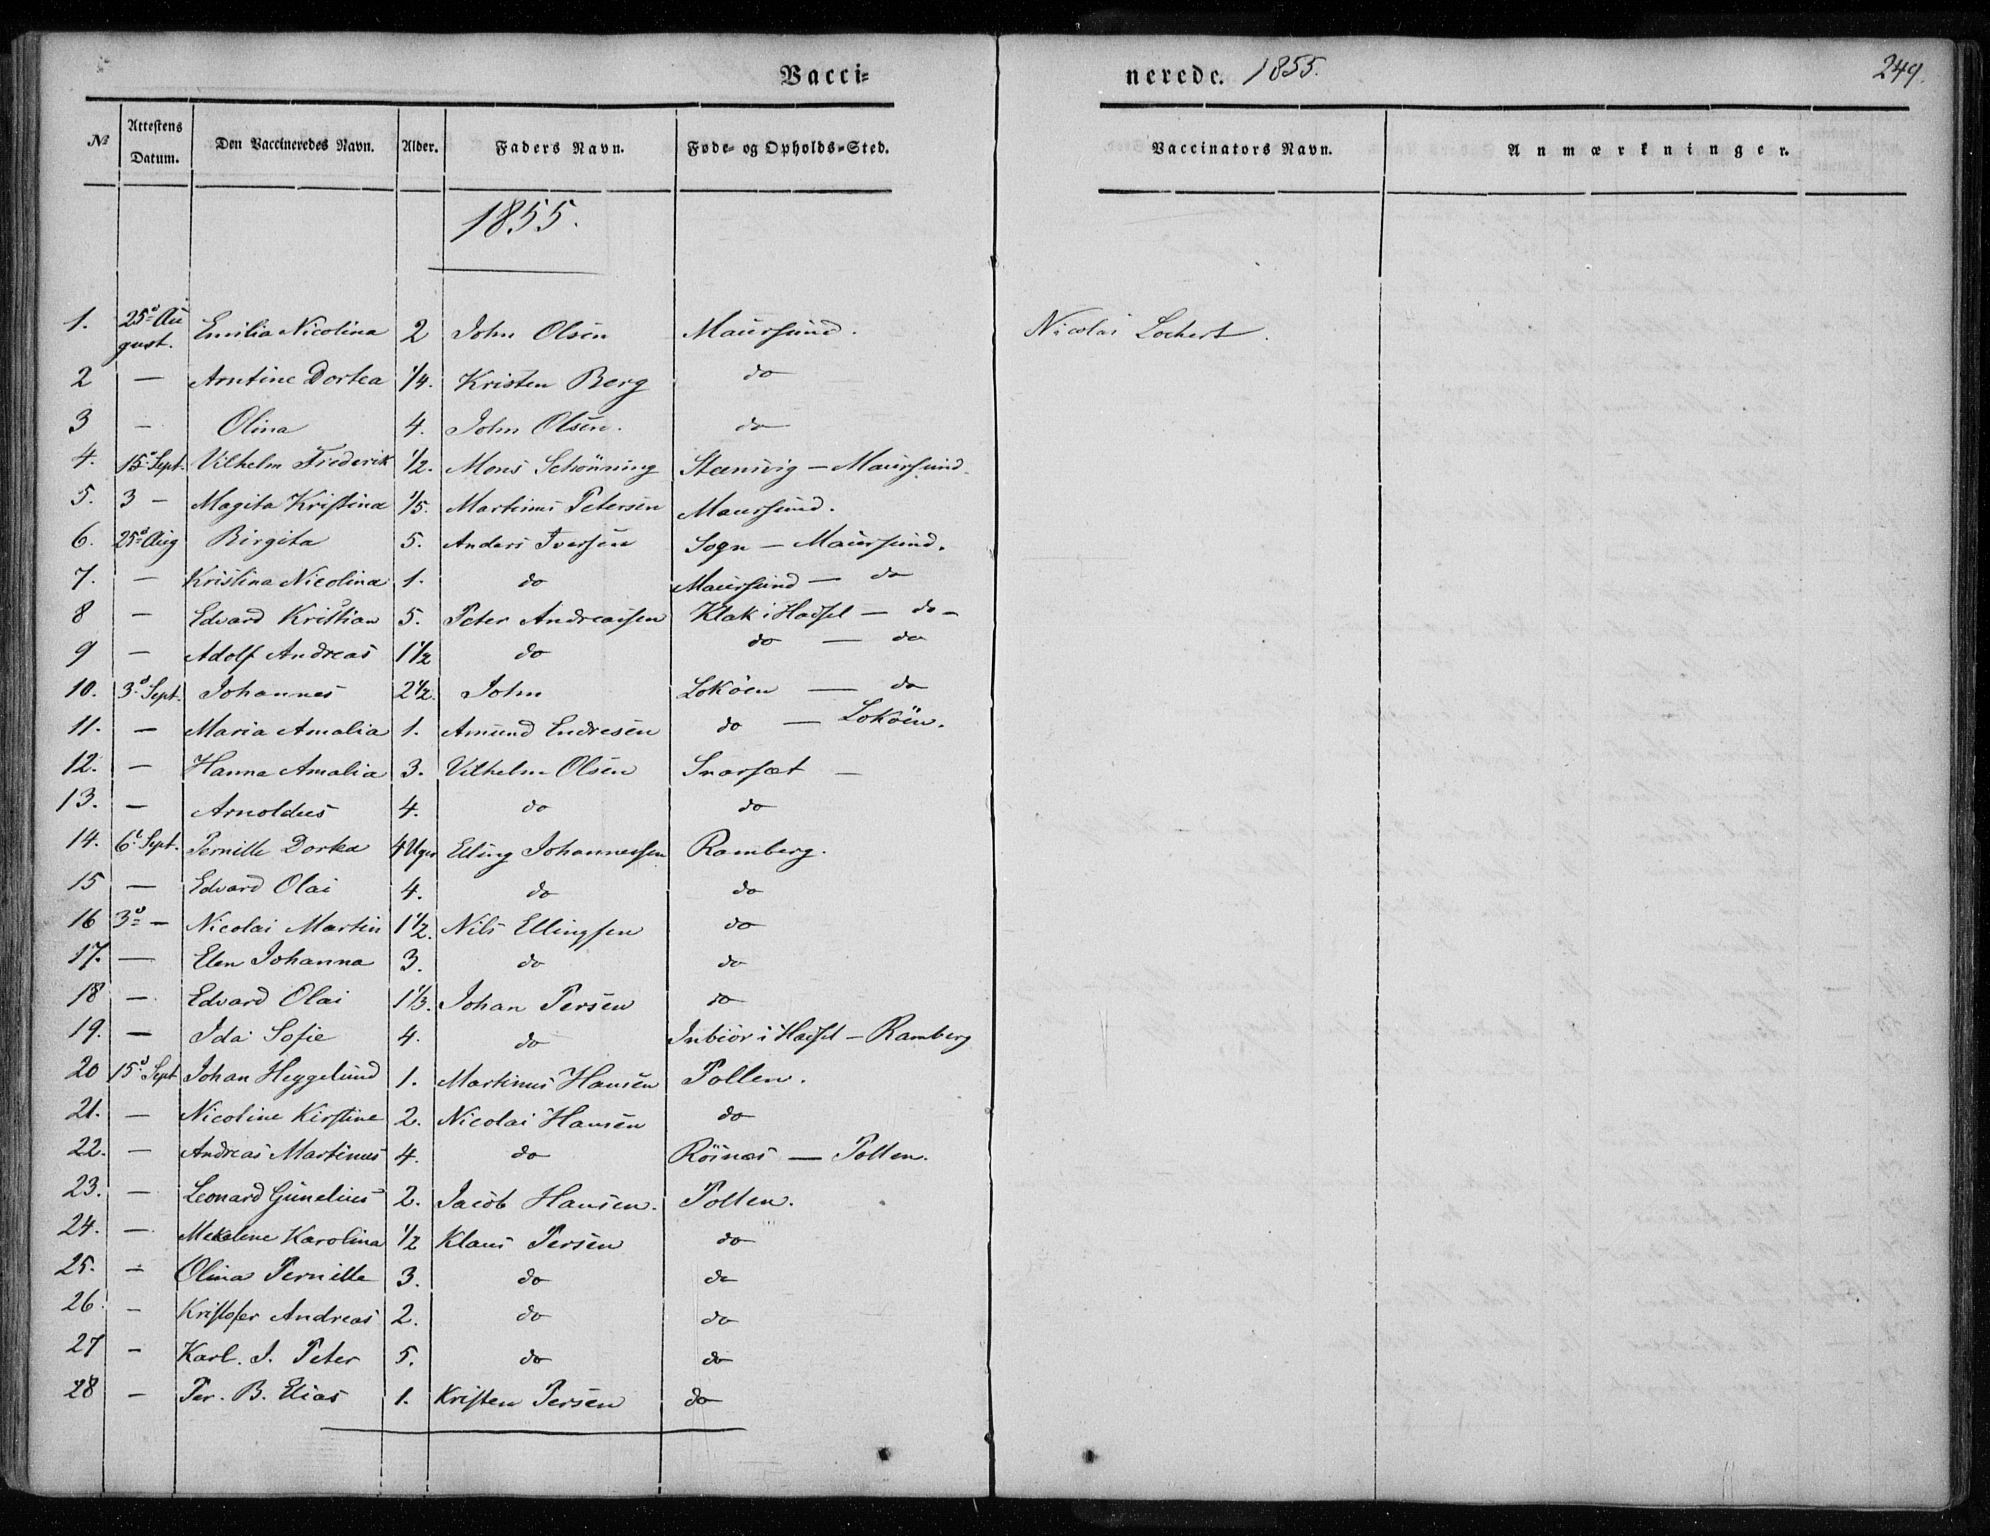 Vacci- nerede. 1855. 249.
№ Attestens Datum. Den Vaccineredes Navn. Alder. Faders Navn. Føde- og Opholds-Sted. Vaccinators Navn. Anmærkninger.
1855.
1. 25de August. Emilia Nicolina 2 John Olsen Maursund. Nicolai Lochert.
2 — Arntine Dortea 1/4. Kristen Berg do
3 — Olina 4. John Olsen. do
4. 15de Sept. Vilhelm Frederik 1/2. Mons Schönning Steensvig — Maursund.
5. 3 — Magita Kristina 1/5. Martinus Petersen Maursund.
6. 25de Aug Birgita 5. Anders Iversen Sogn — Maursund.
7. — Kristina Nicolina 1. do Maursund — do
8 — Edvard Kristian 5. Peter Andreassen Klak i Hadsel — do —
9 — Adolf Andreas 1 1/2 do do — do
10. 3de Sept. Johannes 2 1/2. John Loköen — do
11. — Maria Amalia 1. Amund Endresen do — Loköen.
12. — Hanna Amalia 3. Vilhelm Olsen Snarsæt —
13. — Arnoldus 4. do do
14. 6te Sept. Pernille Dortea 4 Uger Elling Johannessen Ramberg.
15 — Edvard Olai 4. do do
16 3de — Nicolai Martin 1 1/2. Nils Ellingsen do
17. — Elen Johanna 3. do do
18 — Edvard Olai 1 1/3. Johan Persen do
19. — Ida Sofie 4. do Inbiör i Hadsel — Ramberg
20 15de Sept Johan Heggelund 1. Martinus Hansen Pollen.
21. — Nicoline Kirstine 2. Nicolai Hansen do
22. — Andreas Martinus 4. do Röinæs — Pollen.
23. — Leonard Gunelius 2. Jacob Hansen. Pollen.
24. — Mekeline Karolina 1/2 Klaus Persen do
25. — Olina Pernille 3. do do
26. — Kristofer Andreas 2. do do
27 — Karl. J. Peter 5. do do
28 — Per. B. Elias 1. Kristen Persen do